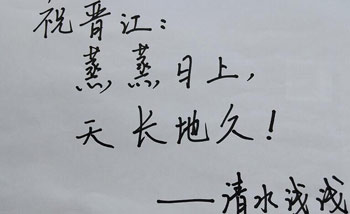 祝晋江：
蒸蒸日上，
天长地久！
——清水浅浅